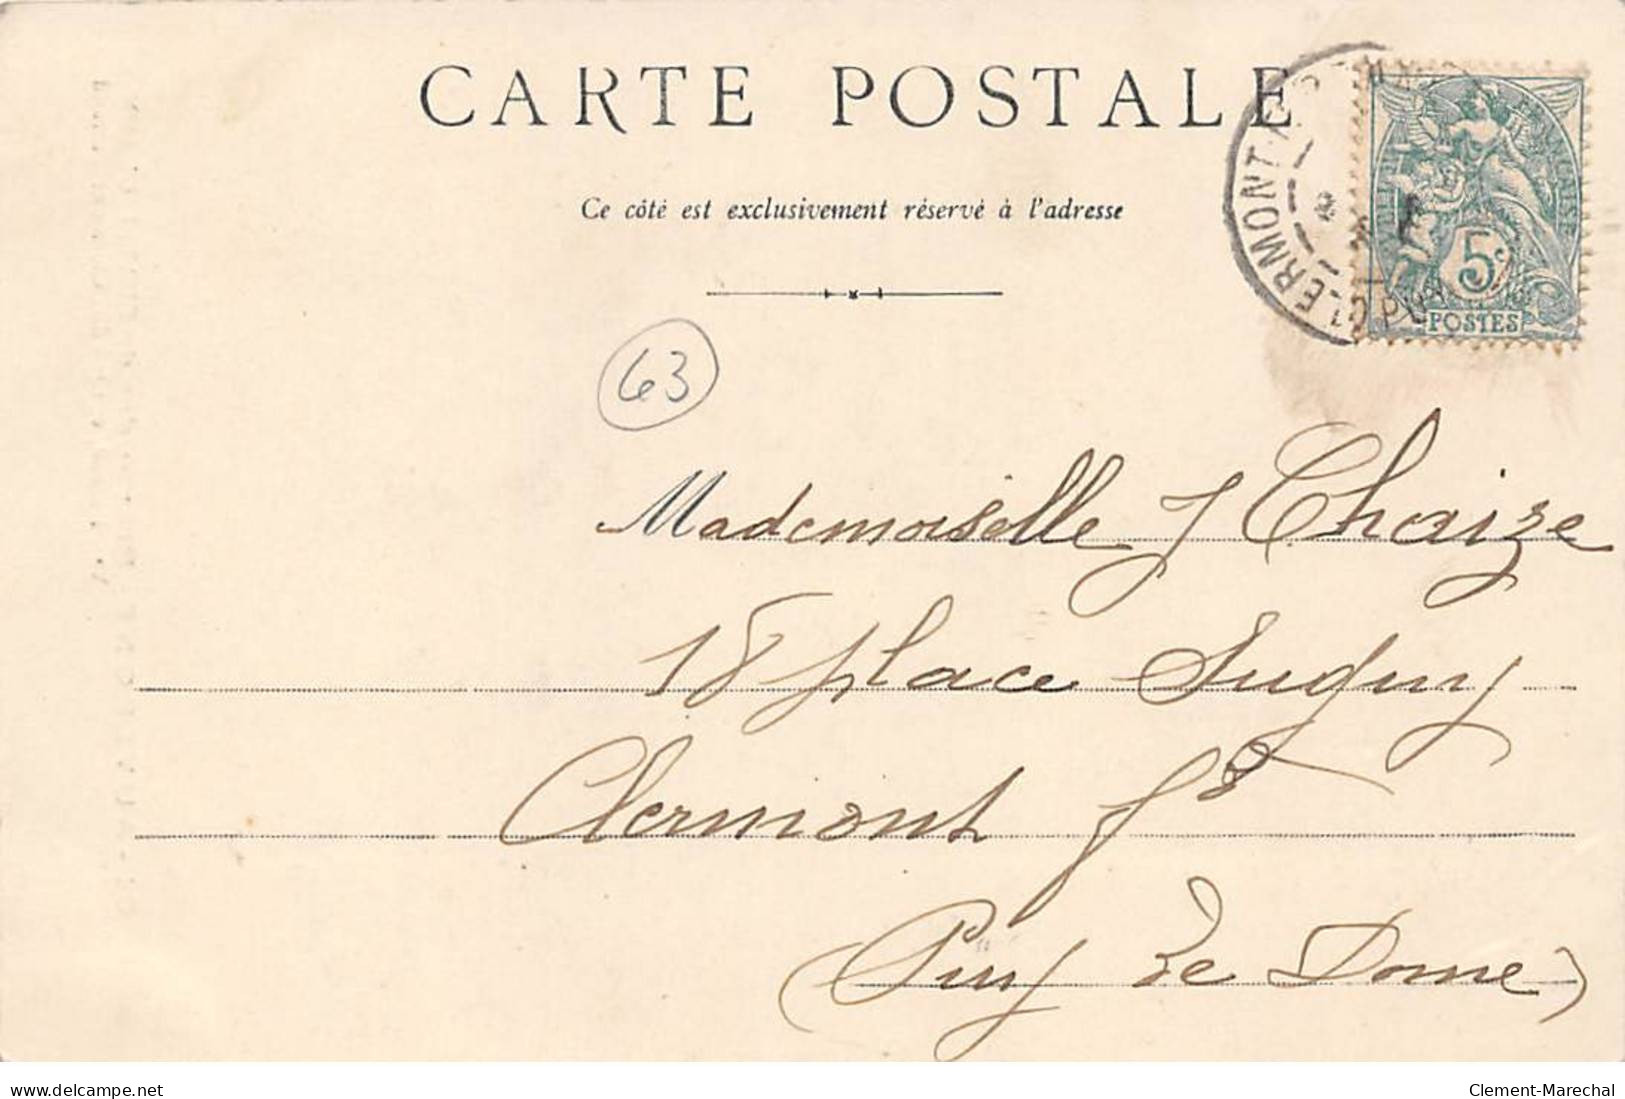 CARTE POSTALE
Ce côté est exclusivement réservé à l'adresse
5c
POSTES
63
Mademoiselle J Chaize
18 place Sugny
Clermont fd
(Puy de Dome)
delcampe.net
Clement-Marechal